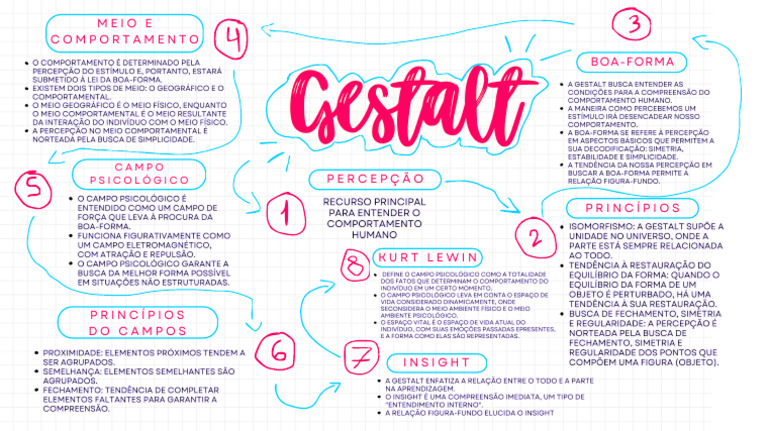 Gestalt
1
PERCEPÇÃO
RECURSO PRINCIPAL
PARA ENTENDER O
COMPORTAMENTO
HUMANO
2
PRINCÍPIOS
ISOMORFISMO: A GESTALT SUPÕE A
UNIDADE NO UNIVERSO, ONDE A
PARTE ESTÁ SEMPRE RELACIONADA
AO TODO.
TENDÊNCIA À RESTAURAÇÃO DO
EQUILÍBRIO DA FORMA: QUANDO O
EQUILÍBRIO DA FORMA DE UM
OBJETO É PERTURBADO, HÁ UMA
TENDÊNCIA À SUA RESTAURAÇÃO.
BUSCA DE FECHAMENTO, SIMETRIA
E REGULARIDADE: A PERCEPÇÃO É
NORTEADA PELA BUSCA DE
FECHAMENTO, SIMETRIA E
REGULARIDADE DOS PONTOS QUE
COMPÕEM UMA FIGURA (OBJETO).
3
BOA-FORMA
A GESTALT BUSCA ENTENDER AS
CONDIÇÕES PARA A COMPREENSÃO DO
COMPORTAMENTO HUMANO.
A MANEIRA COMO PERCEBEMOS UM
ESTÍMULO IRÁ DESENCADEAR NOSSO
COMPORTAMENTO.
A BOA-FORMA SE REFERE À PERCEPÇÃO
EM ASPECTOS BÁSICOS QUE PERMITEM A
SUA DECODIFICAÇÃO: SIMETRIA,
ESTABILIDADE E SIMPLICIDADE.
A TENDÊNCIA DA NOSSA PERCEPÇÃO EM
BUSCAR A BOA-FORMA PERMITE A
RELAÇÃO FIGURA-FUNDO.
4
MEIO E
COMPORTAMENTO
O COMPORTAMENTO É DETERMINADO PELA
PERCEPÇÃO DO ESTÍMULO E, PORTANTO, ESTARÁ
SUBMETIDO À LEI DA BOA-FORMA.
EXISTEM DOIS TIPOS DE MEIO: O GEOGRÁFICO E O
COMPORTAMENTAL.
O MEIO GEOGRÁFICO É O MEIO FÍSICO, ENQUANTO
O MEIO COMPORTAMENTAL É O MEIO RESULTANTE
DA INTERAÇÃO DO INDIVÍDUO COM O MEIO FÍSICO.
A PERCEPÇÃO NO MEIO COMPORTAMENTAL É
NORTEADA PELA BUSCA DE SIMPLICIDADE.
5
CAMPO
PSICOLÓGICO
O CAMPO PSICOLÓGICO É
ENTENDIDO COMO UM CAMPO DE
FORÇA QUE LEVA À PROCURA DA
BOA-FORMA.
FUNCIONA FIGURATIVAMENTE COMO
UM CAMPO ELETROMAGNÉTICO,
COM ATRAÇÃO E REPULSÃO.
O CAMPO PSICOLÓGICO GARANTE A
BUSCA DA MELHOR FORMA POSSÍVEL
EM SITUAÇÕES NÃO ESTRUTURADAS.
6
PRINCÍPIOS
DO CAMPOS
PROXIMIDADE: ELEMENTOS PRÓXIMOS TENDEM A
SER AGRUPADOS.
SEMELHANÇA: ELEMENTOS SEMELHANTES SÃO
AGRUPADOS.
FECHAMENTO: TENDÊNCIA DE COMPLETAR
ELEMENTOS FALTANTES PARA GARANTIR A
COMPREENSÃO.
7
INSIGHT
A GESTALT ENFATIZA A RELAÇÃO ENTRE O TODO E A PARTE
NA APRENDIZAGEM.
O INSIGHT É UMA COMPREENSÃO IMEDIATA, UM TIPO DE
"ENTENDIMENTO INTERNO".
A RELAÇÃO FIGURA-FUNDO ELUCIDA O INSIGHT
8
KURT LEWIN
DEFINE O CAMPO PSICOLÓGICO COMO A TOTALIDADE
DOS FATOS QUE DETERMINAM O COMPORTAMENTO DO
INDIVÍDUO EM UM CERTO MOMENTO.
O CAMPO PSICOLÓGICO LEVA EM CONTA O ESPAÇO DE
VIDA CONSIDERADO DINAMICAMENTE, ONDE
SECONSIDERA O MEIO AMBIENTE FÍSICO E O MEIO
AMBIENTE PSICOLÓGICO.
O ESPAÇO VITAL É O ESPAÇO DE VIDA ATUAL DO
INDIVÍDUO, COM SUAS EMOÇÕES PASSADAS EPRESENTES,
E A FORMA COMO ELAS SÃO REPRESENTADAS.